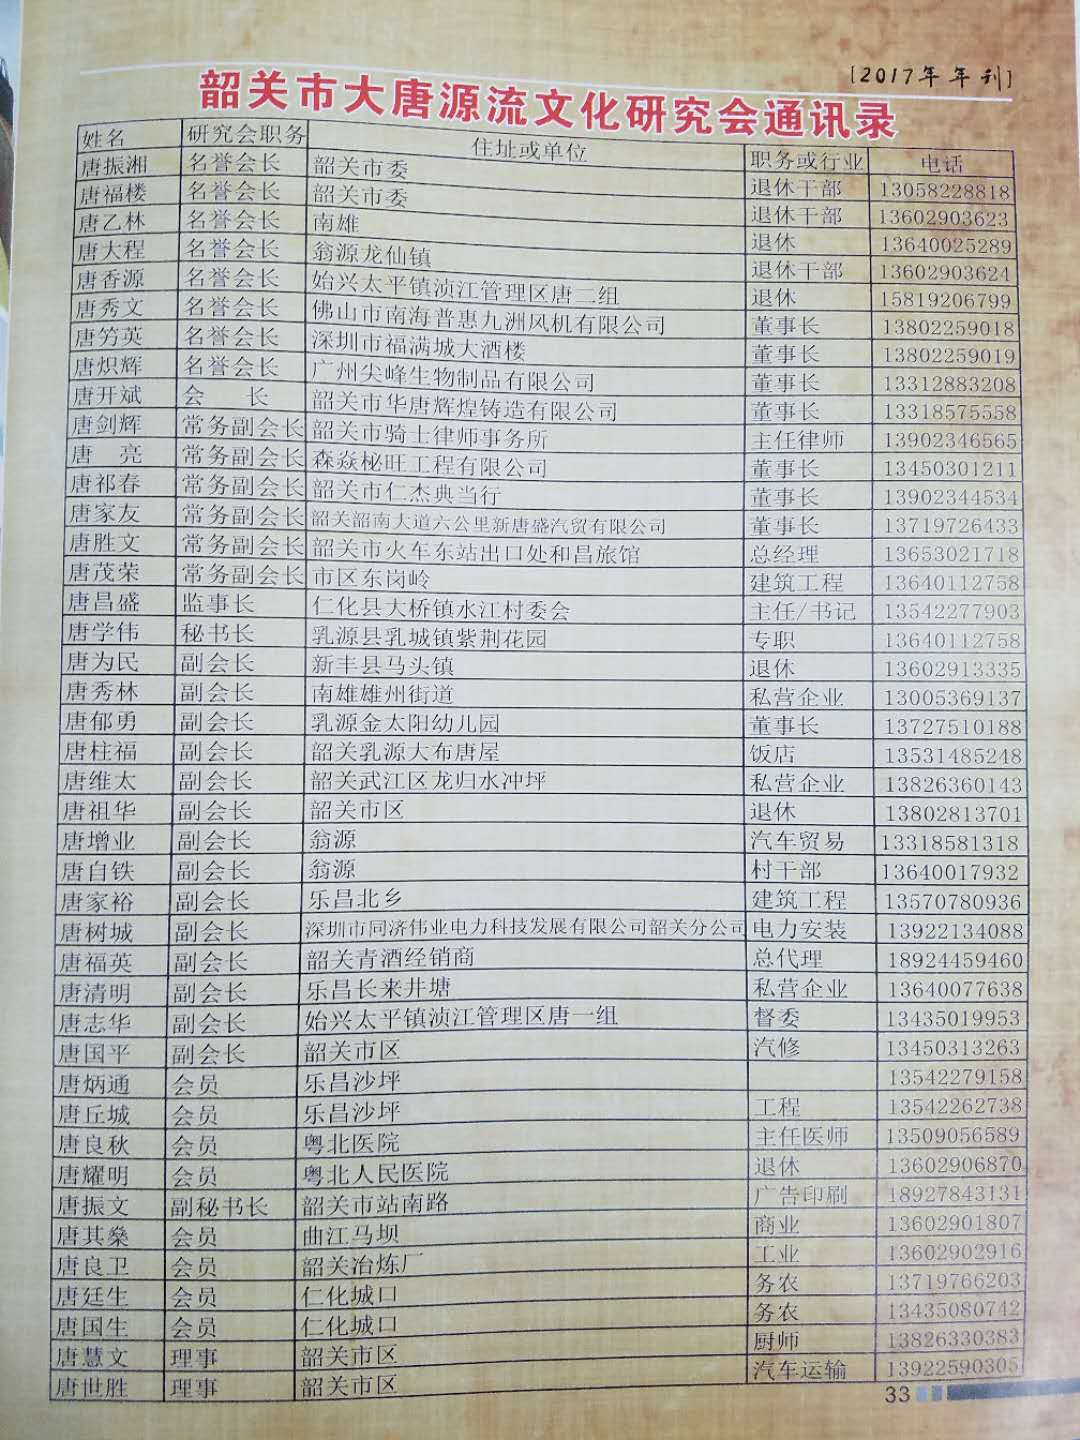 [2017年年刊]
韶关市大唐源流文化研究会通讯录
姓名 研究会职务 住址或单位 职务或行业 电话
唐振湘 名誉会长 韶关市委 退休干部 13058228818
唐福楼 名誉会长 韶关市委 退休干部 13602903623
唐乙林 名誉会长 南雄 退休 13640025289
唐大程 名誉会长 翁源龙仙镇 退休干部 13602903624
唐香源 名誉会长 始兴太平镇浈江管理区唐二组 退休 15819206799
唐秀文 名誉会长 佛山市南海普惠九洲风机有限公司 董事长 13802259018
唐竻英 名誉会长 深圳市福满城大酒楼 董事长 13802259019
唐炽辉 名誉会长 广州尖峰生物制品有限公司 董事长 13312883208
唐开斌 会 长 韶关市华唐辉煌铸造有限公司 董事长 13318575558
唐剑辉 常务副会长 韶关市骑士律师事务所 主任律师 13902346565
唐 亮 常务副会长 森焱柲旺工程有限公司 董事长 13450301211
唐祁春 常务副会长 韶关市仁杰典当行 董事长 13902344534
唐家友 常务副会长 韶关韶南大道六公里新唐盛汽贸有限公司 董事长 13719726433
唐胜文 常务副会长 韶关市火车东站出口处和昌旅馆 总经理 13653021718
唐茂荣 常务副会长 市区东岗岭 建筑工程 13640112758
唐昌盛 监事长 仁化县大桥镇水江村委会 主任/书记 13542277903
唐学伟 秘书长 乳源县乳城镇紫荆花园 专职 13640112758
唐为民 副会长 新丰县马头镇 退休 13602913335
唐秀林 副会长 南雄雄州街道 私营企业 13005369137
唐郁勇 副会长 乳源金太阳幼儿园 董事长 13727510188
唐柱福 副会长 韶关乳源大布唐屋 饭店 13531485248
唐维太 副会长 韶关武江区龙归水冲坪 私营企业 13826360143
唐祖华 副会长 韶关市区 退休 13802813701
唐增业 副会长 翁源 汽车贸易 13318581318
唐自铁 副会长 翁源 村干部 13640017932
唐家裕 副会长 乐昌北乡 建筑工程 13570780936
唐树城 副会长 深圳市同济伟业电力科技发展有限公司韶关分公司 电力安装 13922134088
唐福英 副会长 韶关青酒经销商 总代理 18924459460
唐清明 副会长 乐昌长来井塘 私营企业 13640077638
唐志华 副会长 始兴太平镇浈江管理区唐一组 督委 13435019953
唐国平 副会长 韶关市区 汽修 13450313263
唐炳通 会员 乐昌沙坪 13542279158
唐丘城 会员 乐昌沙坪 工程 13542262738
唐良秋 会员 粤北医院 主任医师 13509056589
唐耀明 会员 粤北人民医院 退休 13602906870
唐振文 副秘书长 韶关市站南路 广告印刷 18927843131
唐其燊 会员 曲江马坝 商业 13602901807
唐良卫 会员 韶关冶炼厂 工业 13602902916
唐廷生 会员 仁化城口 务农 13719766203
唐国生 会员 仁化城口 务农 13435080742
唐慧文 理事 韶关市区 厨师 13826330383
唐世胜 理事 韶关市区 汽车运输 13922590305
33